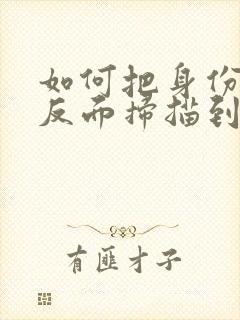 如何把身份
反而扫描到
有匪才子